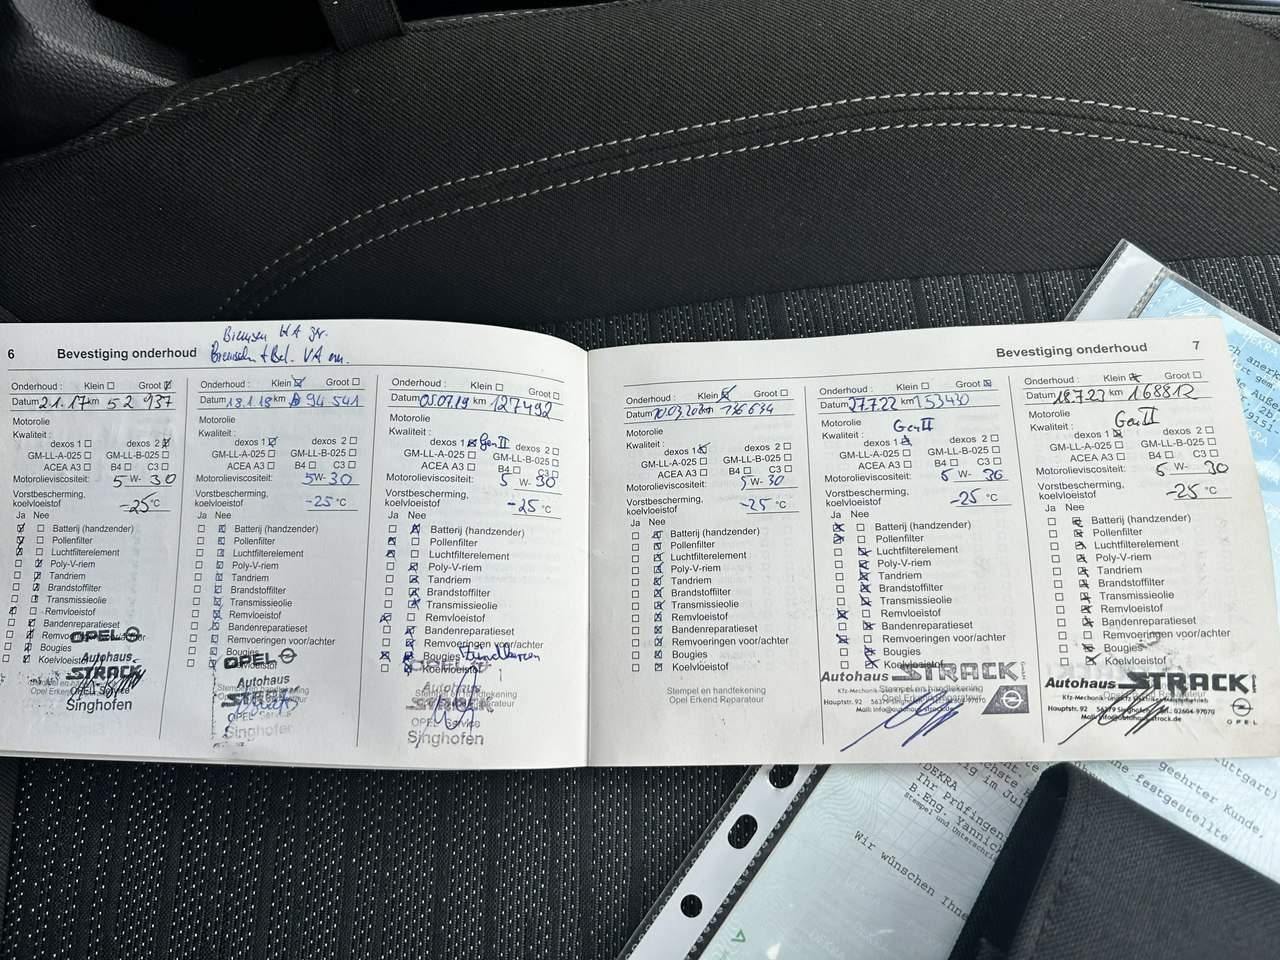 6 Bevestiging onderhoud
Onderhoud : Klein Groot
Datum 2.1.17 km 52 937
Motorolie
Kwaliteit :
dexos 1 dexos 2
GM-LL-A-025 GM-LL-B-025
ACEA A3 B4 C3
Motorolieviscositeit: 5 W- 30
Vorstbescherming,
koelvloeistof -25 °C
Ja Nee
Batterij (handzender)
Pollenfilter
Luchtfilterelement
Poly-V-riem
Tandriem
Brandstoffilter
Transmissieolie
Remvloeistof
Bandenreparatieset
Bougies
OPEL
Autohaus
STRACK
OPEL Service
Singhofen
Onderhoud : Klein Groot
Datum 18.1.18 km 94 541
Motorolie
Kwaliteit :
dexos 1 dexos 2
GM-LL-A-025 GM-LL-B-025
ACEA A3 B4 C3
Motorolieviscositeit: 5 W- 30
Vorstbescherming,
koelvloeistof -25 °C
Ja Nee
Batterij (handzender)
Pollenfilter
Luchtfilterelement
Poly-V-riem
Tandriem
Brandstoffilter
Transmissieolie
Remvloeistof
Bandenreparatieset
Remvoeringen voor/achter
Bougies
OPEL
Autohaus
STRACK
OPEL Service
Singhofen
Onderhoud : Klein Groot
Datum 05.07.19 km 127492
Motorolie
Kwaliteit :
dexos 1 Gen II dexos 2
GM-LL-A-025 GM-LL-B-025
ACEA A3 B4 C3
Motorolieviscositeit: 5 W- 30
Vorstbescherming,
koelvloeistof -25 °C
Ja Nee
Batterij (handzender)
Pollenfilter
Luchtfilterelement
Poly-V-riem
Tandriem
Brandstoffilter
Transmissieolie
Remvloeistof
Bandenreparatieset
Remvoeringen voor/achter
Bougies
Koelvloeistof
OPEL
Autohaus
STRACK
OPEL Service
Singhofen
Bevestiging onderhoud 7
Onderhoud : Klein Groot
Datum km 136 634
Motorolie
Kwaliteit :
dexos 1 dexos 2
GM-LL-A-025 GM-LL-B-025
ACEA A3 B4 C3
Motorolieviscositeit: 5 W- 30
Vorstbescherming,
koelvloeistof -25 °C
Ja Nee
Batterij (handzender)
Pollenfilter
Luchtfilterelement
Poly-V-riem
Tandriem
Brandstoffilter
Transmissieolie
Remvloeistof
Bandenreparatieset
Remvoeringen voor/achter
Bougies
Koelvloeistof
Stempel en handtekening
Opel Erkend Reparateur
Onderhoud : Klein Groot
Datum 27.7.22 km 153430
Motorolie Gen II
Kwaliteit :
dexos 1 dexos 2
GM-LL-A-025 GM-LL-B-025
ACEA A3 B4 C3
Motorolieviscositeit: 5 W- 30
Vorstbescherming,
koelvloeistof -25 °C
Ja Nee
Batterij (handzender)
Pollenfilter
Luchtfilterelement
Poly-V-riem
Tandriem
Brandstoffilter
Transmissieolie
Remvloeistof
Bandenreparatieset
Remvoeringen voor/achter
Bougies
Koelvloeistof
Autohaus STRACK
Stempel en handtekening
Opel Erkend Reparateur
Onderhoud : Klein Groot
Datum 18.7.23 km 168812
Motorolie Gen II
Kwaliteit :
dexos 1 dexos 2
GM-LL-A-025 GM-LL-B-025
ACEA A3 B4 C3
Motorolieviscositeit: 5 W- 30
Vorstbescherming,
koelvloeistof -25 °C
Ja Nee
Batterij (handzender)
Pollenfilter
Luchtfilterelement
Poly-V-riem
Tandriem
Brandstoffilter
Transmissieolie
Remvloeistof
Bandenreparatieset
Remvoeringen voor/achter
Bougies
Koelvloeistof
Autohaus STRACK
Hauptstr. 92 56379 Singhofen Tel.: 02604-97070
Mail: info@autohaus-strack.de
OPEL
DEKRA
Ihr Prüfingen
B.Eng. Yannick
Stempel und Unterschrift
Wir wünschen Ihne
geehrter Kunde,
festgestellte